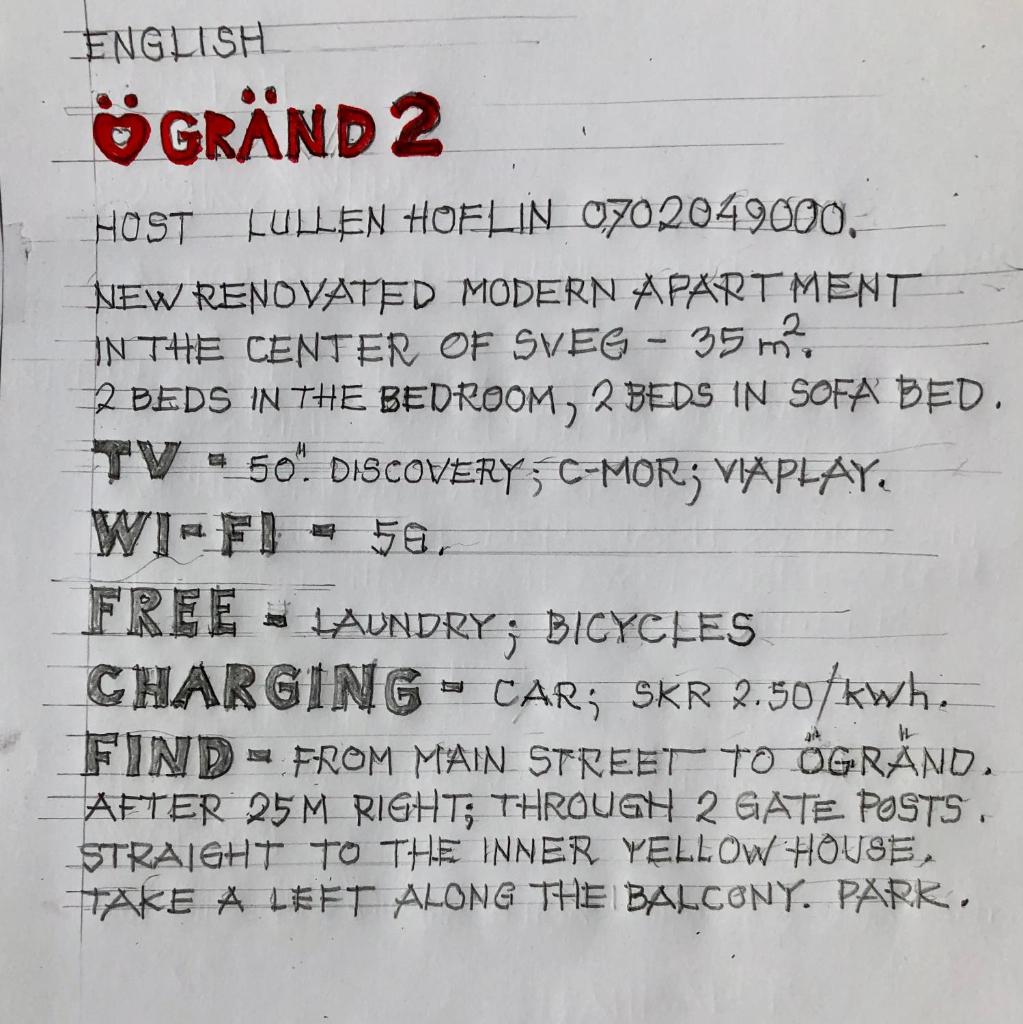 ENGLISH
ÖGRÄND 2
HOST LULLEN HOFLIN 0702049000.
NEW RENOVATED MODERN APARTMENT
IN THE CENTER OF SVEG - 35 m².
2 BEDS IN THE BEDROOM, 2 BEDS IN SOFA BED.
TV - 50". DISCOVERY; C-MOR; VIAPLAY.
WI-FI - 5G.
FREE - LAUNDRY; BICYCLES
CHARGING - CAR; SKR 2.50/kWh.
FIND - FROM MAIN STREET TO ÖGRÄND.
AFTER 25M RIGHT; THROUGH 2 GATE POSTS.
STRAIGHT TO THE INNER YELLOW HOUSE.
TAKE A LEFT ALONG THE BALCONY. PARK.